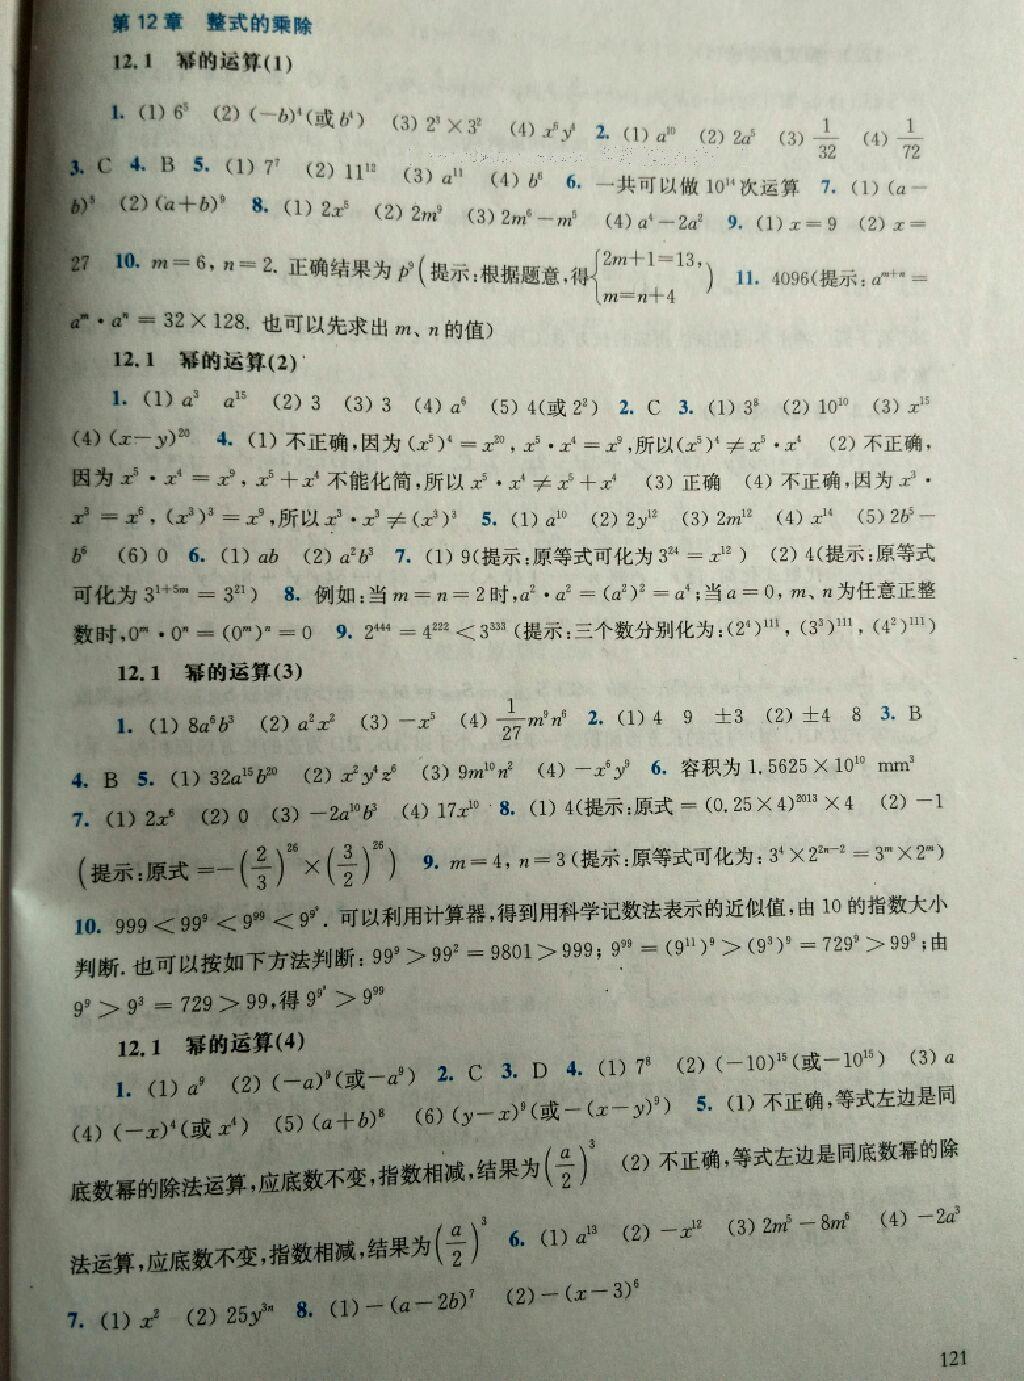 第12章 整式的乘除
12.1 幂的运算(1)
1. (1) 6⁵ (2) (−b)⁴(或b⁴) (3) 2³×3² (4) x⁶y⁸ 2. (1) a¹⁰ (2) 2a⁵ (3) 1/32 (4) 1/72
3. C 4. B 5. (1) 7⁷ (2) 11¹² (3) a¹¹ (4) b⁶ 6. 一共可以做10¹⁴次运算 7. (1) (a−
b)⁸ (2) (a+b)⁹ 8. (1) 2x⁵ (2) 2m⁹ (3) 2m⁶−m⁵ (4) a⁴−2a² 9. (1) x=9 (2) x=
27 10. m=6, n=2. 正确结果为 p³(提示:根据题意,得{2m+1=13, m=n+4) 11. 4096(提示: aᵐ⁺ⁿ =
aᵐ·aⁿ = 32×128. 也可以先求出m、n的值)
12.1 幂的运算(2)
1. (1) a³ a¹⁵ (2) 3 (3) 3 (4) a⁶ (5) 4(或2²) 2. C 3. (1) 3⁸ (2) 10¹⁰ (3) x¹⁵
(4) (x−y)²⁰ 4. (1) 不正确,因为(x⁵)⁴=x²⁰, x⁵·x⁴=x⁹,所以(x⁵)⁴≠x⁵·x⁴ (2) 不正确,
因为x⁵·x⁴=x⁹, x⁵+x⁴不能化简,所以x⁵·x⁴≠x⁵+x⁴ (3) 正确 (4) 不正确,因为x³·
x³=x⁶, (x³)³=x⁹,所以x³·x³≠(x³)³ 5. (1) a¹⁰ (2) 2y¹² (3) 2m¹² (4) x¹⁴ (5) 2b⁵−
b⁶ (6) 0 6. (1) ab (2) a²b³ 7. (1) 9(提示:原等式可化为3²⁴=x¹²) (2) 4(提示:原等式
可化为3¹⁺⁵ᵐ=3²¹) 8. 例如:当m=n=2时,a²·a²=(a²)²=a⁴;当a=0, m、n为任意正整
数时,0ᵐ·0ⁿ=(0ᵐ)ⁿ=0 9. 2⁴⁴⁴=4²²²<3³³³(提示:三个数分别化为:(2⁴)¹¹¹, (3³)¹¹¹, (4²)¹¹¹)
12.1 幂的运算(3)
1. (1) 8a⁶b³ (2) a²x² (3) −x⁵ (4) 1/27 m⁹n⁶ 2. (1) 4 9 ±3 (2) ±4 8 3. B
4. B 5. (1) 32a¹⁵b²⁰ (2) x²y⁴z⁶ (3) 9m¹⁰n² (4) −x⁶y⁹ 6. 容积为1.5625×10¹⁰ mm³
7. (1) 2x⁶ (2) 0 (3) −2a¹⁰b³ (4) 17x¹⁰ 8. (1) 4(提示:原式=(0.25×4)²⁰¹³×4 (2) −1
(提示:原式=−(2/3)²⁶×(3/2)²⁶) 9. m=4, n=3(提示:原等式可化为: 3⁴×2²ⁿ⁻²=3ᵐ×2ᵐ)
10. 999<99⁹<9⁹⁹<9^(9⁹). 可以利用计算器,得到用科学记数法表示的近似值,由10的指数大小
判断.也可以按如下方法判断: 99⁹>99²=9801>999; 9⁹⁹=(9¹¹)⁹>(9³)⁹=729⁹>99⁹;由
9⁹>9³=729>99,得9^(9⁹)>9⁹⁹
12.1 幂的运算(4)
1. (1) a⁹ (2) (−a)⁹(或−a⁹) 2. C 3. D 4. (1) 7⁸ (2) (−10)¹⁵(或−10¹⁵) (3) a
(4) (−x)⁴(或x⁴) (5) (a+b)⁸ (6) (y−x)⁹(或−(x−y)⁹) 5. (1) 不正确,等式左边是同
底数幂的除法运算,应底数不变,指数相减,结果为(a/2)³ (2) 不正确,等式左边是同底数幂的除
法运算,应底数不变,指数相减,结果为(a/2)³ 6. (1) a¹³ (2) −x¹² (3) 2m⁵−8m⁶ (4) −2a³
7. (1) x² (2) 25y³ⁿ 8. (1)−(a−2b)⁷ (2)−(x−3)⁶
121